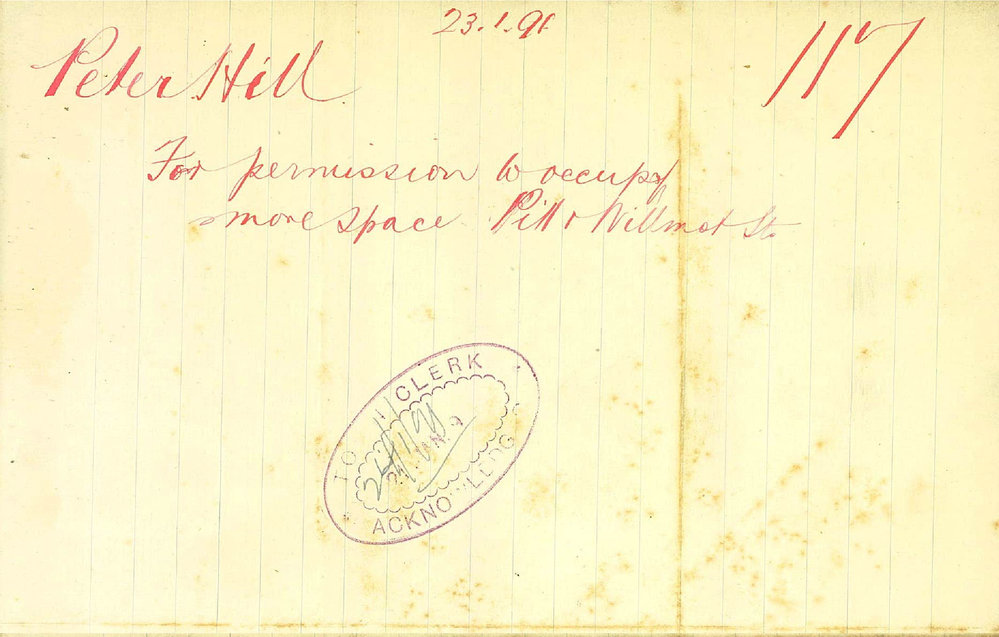 23.1.91
Peter Hill
117
For permission to occupy
more space Pitt & Willmot St.
TO CLERK
ACKNOWLEDG